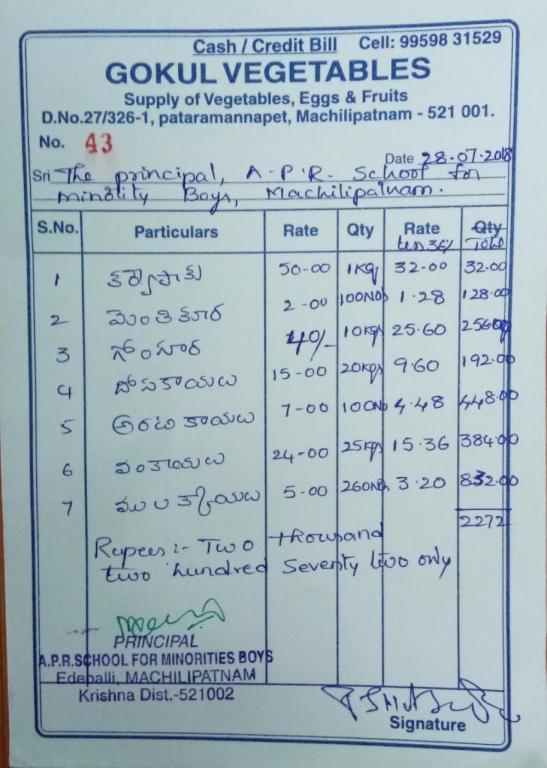 Cash / Credit Bill Cell: 99598 31529
GOKUL VEGETABLES
Supply of Vegetables, Eggs & Fruits
D.No.27/326-1, pataramannapet, Machilipatnam - 521 001.
No. 43
Date 28-07-2018
Sri The principal, A.P.R. School for
minority Boys, Machilipatnam.
S.No. Particulars Rate Qty Rate Qty
less 36% Total
1 కర్వేపాకు 50-00 1Kg 32-00 32-00
2 మెంతికూర 2-00 100NOs 1.28 128-00
3 గోంగూర 40/- 10Kgs 25.60 256-00
4 దోసకాయలు 15-00 20Kgs 9.60 192-00
5 అరటికాయలు 7-00 100NO 4.48 448-00
6 వంకాయలు 24-00 25Kgs 15.36 384-00
7 ములక్కాయలు 5-00 260NOs 3.20 832-00
2272
Rupees :- Two thousand
two hundred Seventy two only
PRINCIPAL
A.P.R.SCHOOL FOR MINORITIES BOYS
Edepalli, MACHILIPATNAM
Krishna Dist.-521002
Signature